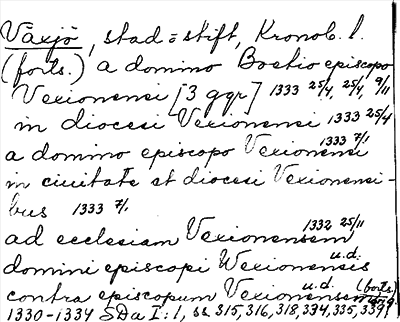 Växjö, stad = stift, Kronob. l.
(forts.) a domino Boetio episcopo
Vexionensi [3 ggr] 1333 25/4, 25/4, 9/11
in diocesi Vexionensi 1333 25/4
a domino episcopo Vexionensi 1333 7/1
in ciuitate et diocesi Vexionensi-
bus 1333 7/1.
ad ecclesiam Vexionensem 1332 25/11
domini episcopi Wexionensis u.d.
contra episcopum Vexionensem u.d. (forts)
1330-1334 SDa I:1, ss 315, 316, 318, 334, 335, 339,